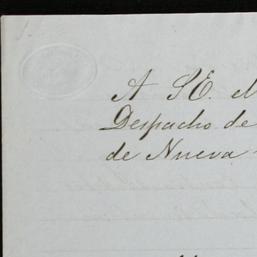 A S.E. 
Despacho de
de Nueva